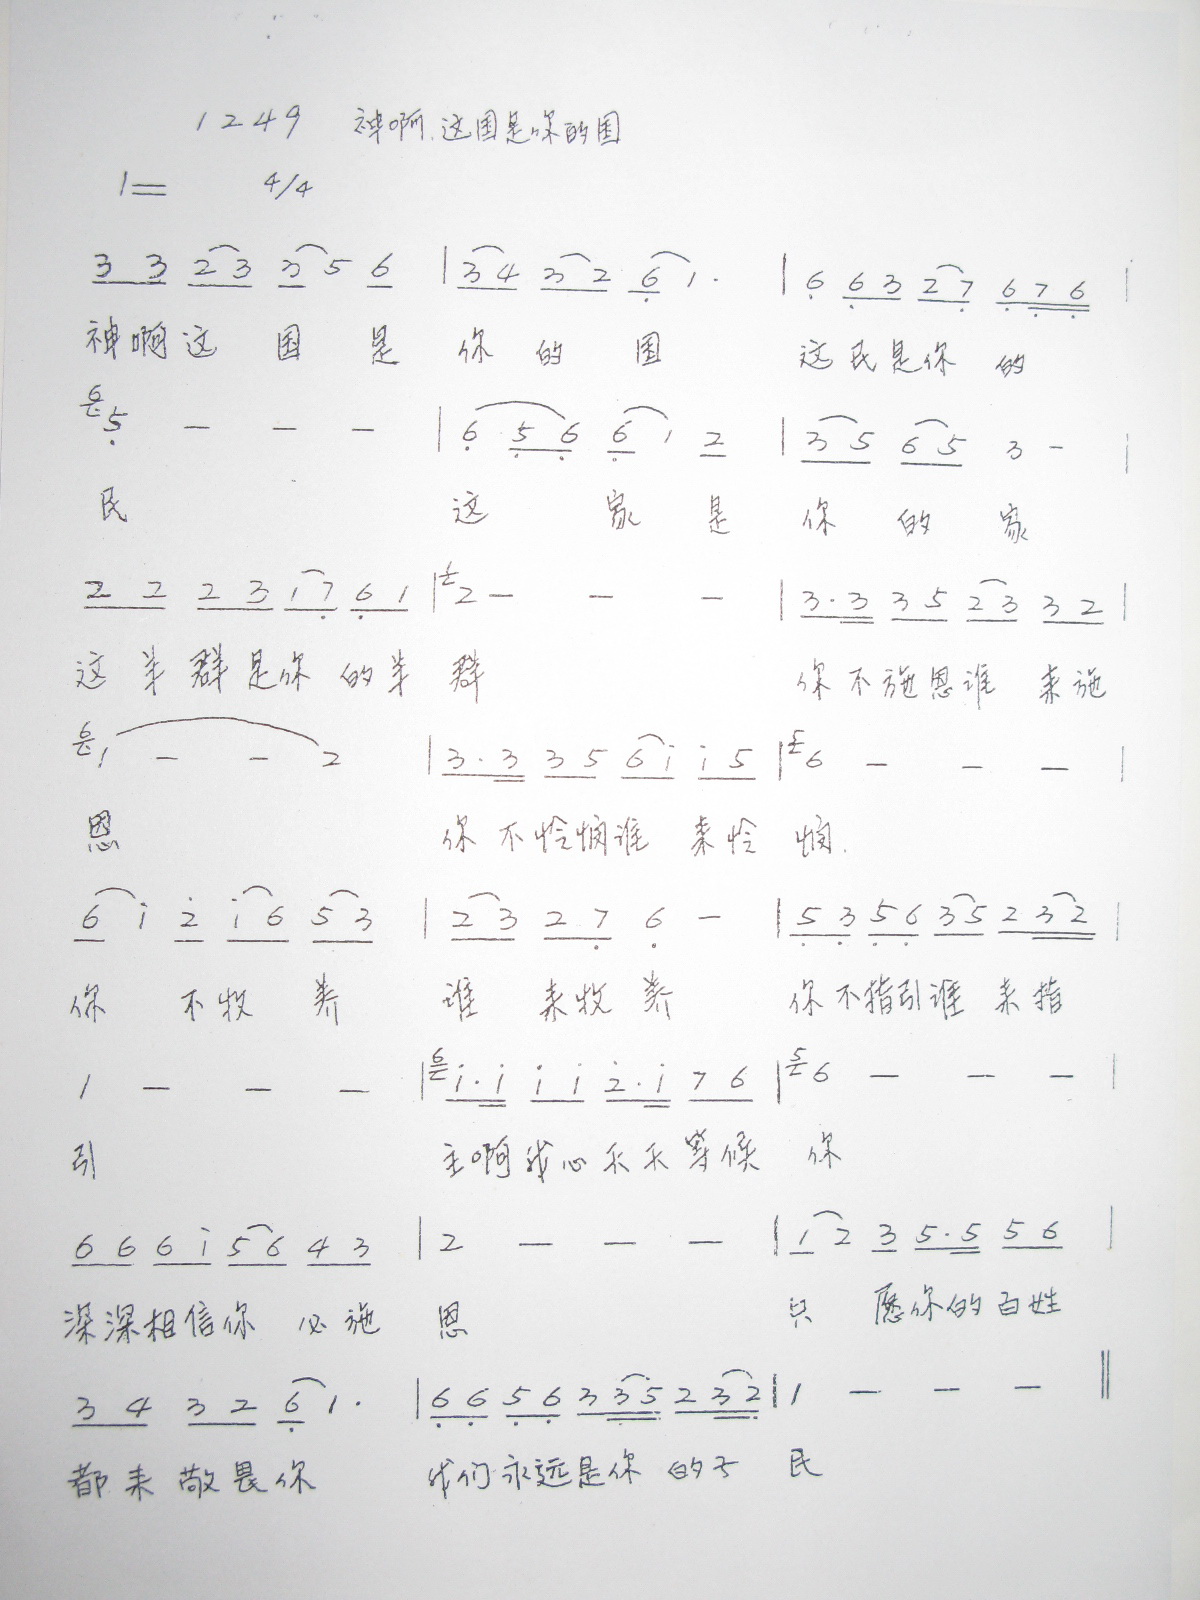 1249 神啊,这国是你的国
1= 4/4
3 3 2 3 3 5 6 | 3 4 3 2 6 1 · | 6 6 3 2 7 6 7 6 |
神啊这 国 是 你 的 国 这民是你 的
6 5 — — — | 6 5 6 6 1 2 | 3 5 6 5 3 - |
民 这 家 是 你 的 家
2 2 2 3 1 7 6 1 | 1 2 — — — | 3 · 3 3 5 2 3 3 2 |
这 羊 群是你 的羊 群 你不施恩谁 来施
6 1 — — 2 | 3 · 3 3 5 6 i i 5 | 5 6 — — — |
恩 你 不怜悯谁 来怜 悯.
6 i 2 i 6 5 3 | 2 3 2 7 6 — | 5 3 5 6 3 5 2 3 2 |
你 不牧 养 谁 来牧 养 你不指引谁 来指
1 — — — | 6 i · i i i 2 · i 7 6 | 5 6 — — — |
引 主啊我心天天等候 你
6 6 6 i 5 6 4 3 | 2 — — — | 1 2 3 5 · 5 5 6 |
深深相信你 必施 恩 只 愿你的百姓
3 4 3 2 6 1 · | 6 6 5 6 3 3 5 2 3 2 | 1 — — — ‖
都来 敬畏你 我们永远是你 的子 民